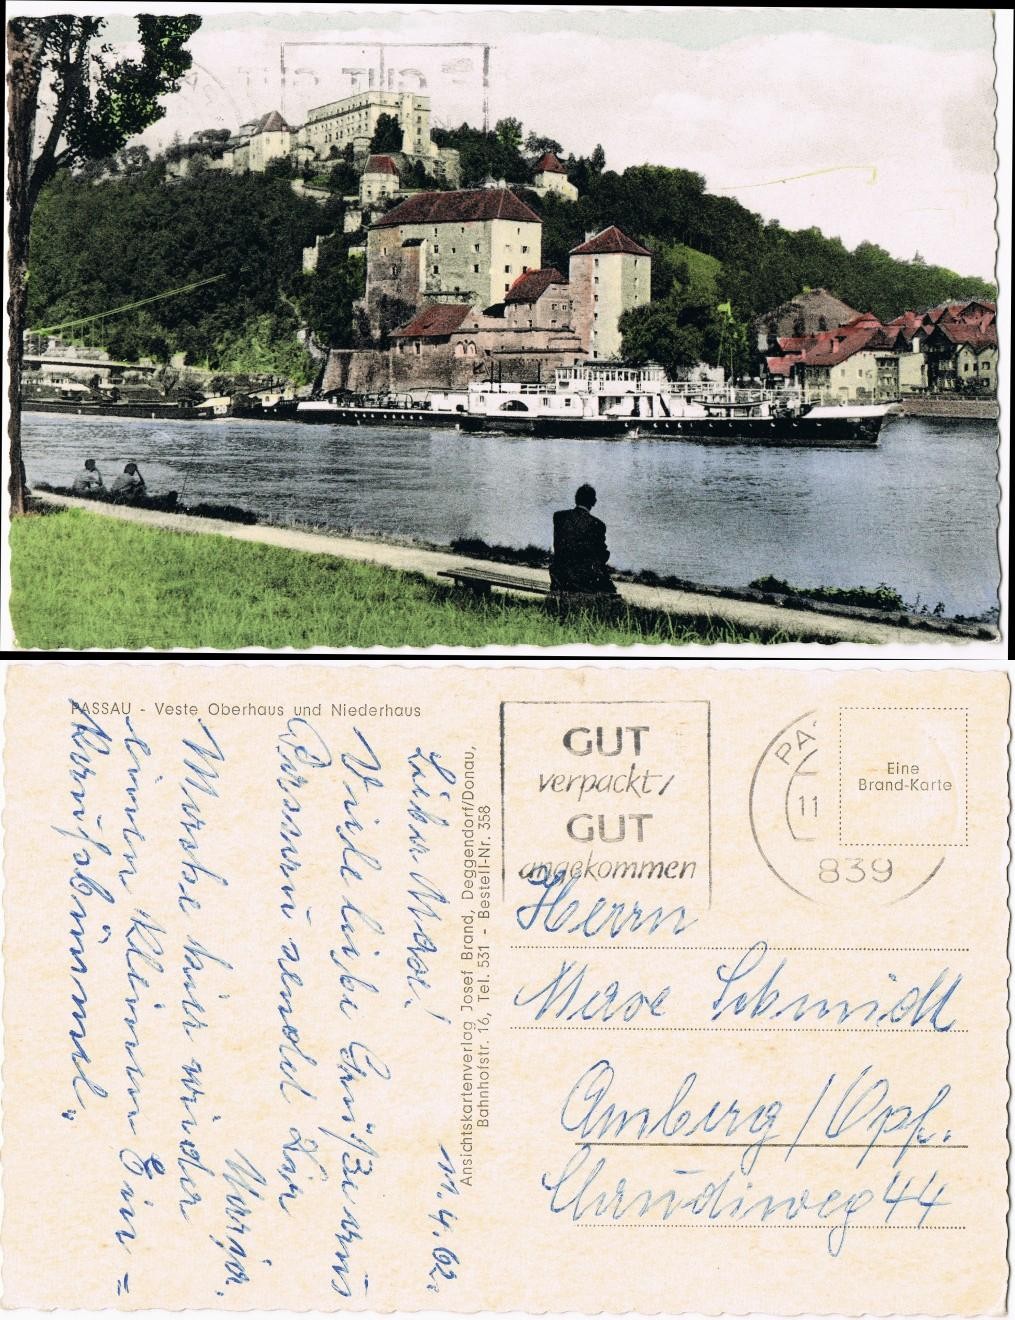 PASSAU - Veste Oberhaus und Niederhaus
11.4.62.
Lieber Max!
Viele liebe Grüße aus
Passau sendet Dir
Maria.
Mache hier wieder
einen kleinen Ein=
kaufsbümmel.
Ansichtskartenverlag Josef Brand, Deggendorf/Donau,
Bahnhofstr. 16, Tel. 531 - Bestell-Nr. 358
GUT
verpackt,
GUT
angekommen
PA
11
839
Eine
Brand-Karte
Herrn
Max Schmidt
Amberg/Opf.
44